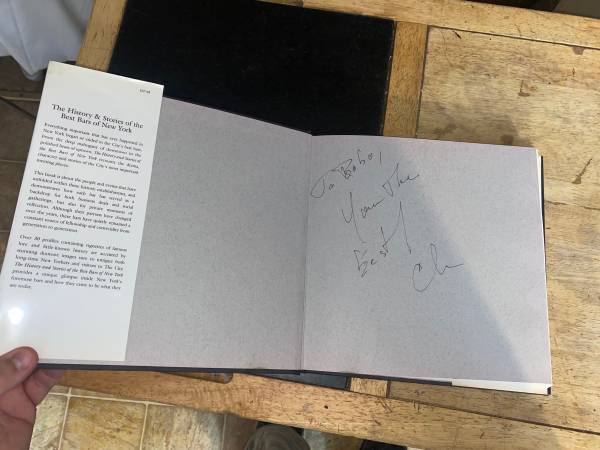 The History & Stories of the
Best Bars of New York
Everything important that has ever happened in
New York began or ended in the City's best bars.
From the deep mahogany of downtown to the
polished brass of uptown, The History and Stories of
the Best Bars of New York recounts the drama,
characters and stories of the City's most important
meeting places.
This book is about the people and events that have
unfolded within these historic establishments, and
demonstrates how each bar has served as a
backdrop for both business deals and social
gatherings, but also for private moments of
reflection. Although their patrons have changed
over the years, these bars have quietly remained a
constant source of fellowship and camaraderie from
generation to generation.
Over 80 profiles containing vignettes of famous
lore and little-known history are accented by
stunning duotone images sure to intrigue both
long-time New Yorkers and visitors to The City.
The History and Stories of the Best Bars of New York
provides a unique glimpse inside New York's
foremost bars and how they came to be what they
are today.
To Bobo,
Your The
best!